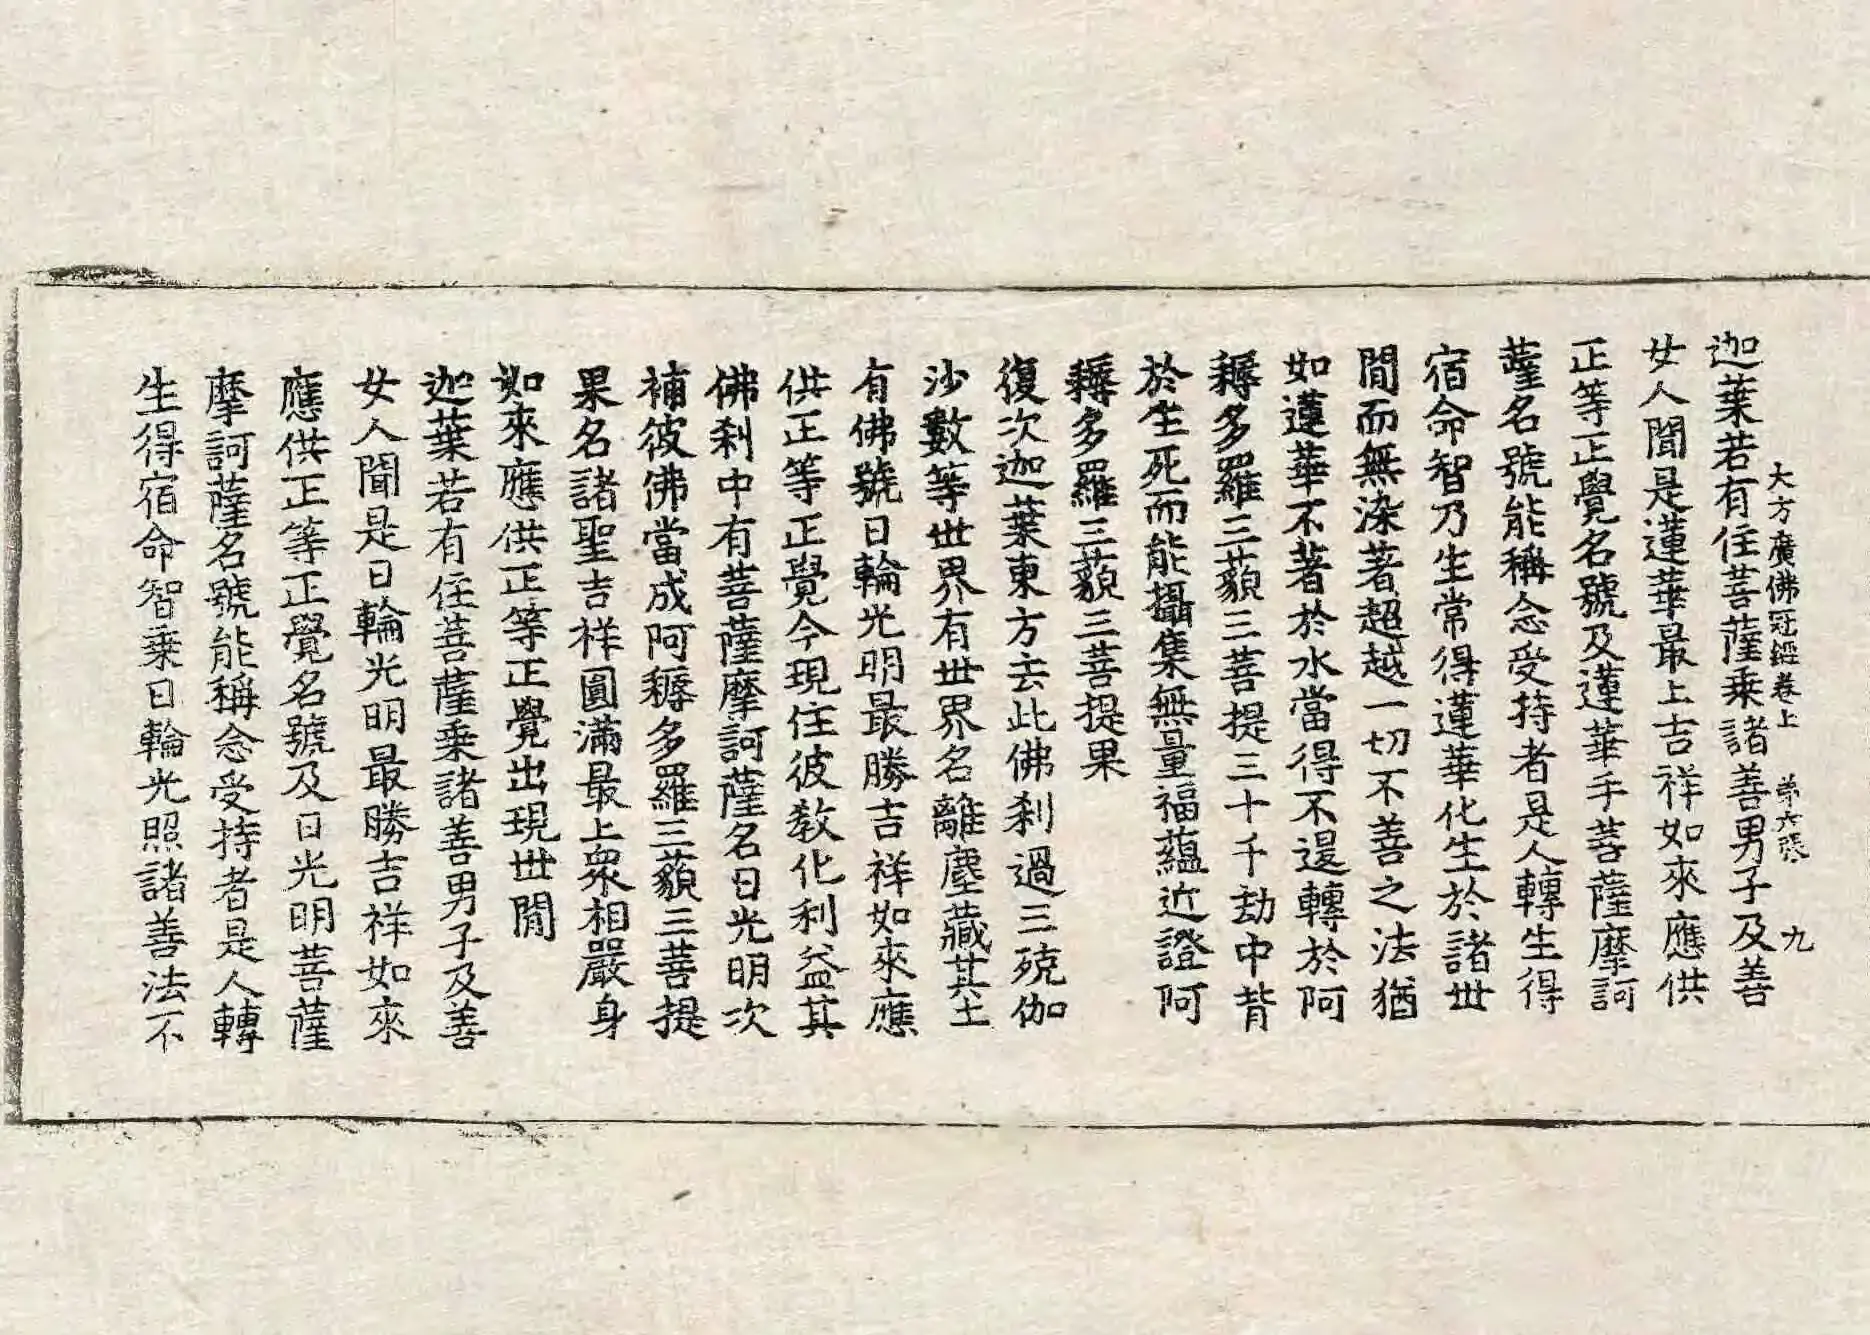 大方廣佛冠經卷上 第六張 九
迦葉若有住菩薩乘諸善男子及善
女人聞是蓮華最上吉祥如來應供
正等正覺名號及蓮華手菩薩摩訶
薩名號能稱念受持者是人轉生得
宿命智乃生常得蓮華化生於諸世
間而無染著超越一切不善之法猶
如蓮華不著於水當得不退轉於阿
耨多羅三藐三菩提三十千劫中背
於生死而能攝集無量福蘊近證阿
耨多羅三藐三菩提果
復次迦葉東方去此佛剎過三殑伽
沙數等世界有世界名離塵藏其土
有佛號日輪光明最勝吉祥如來應
供正等正覺今現住彼教化利益其
佛剎中有菩薩摩訶薩名日光明次
補彼佛當成阿耨多羅三藐三菩提
果名諸聖吉祥圓滿最上眾相嚴身
如來應供正等正覺出現世間
迦葉若有住菩薩乘諸善男子及善
女人聞是日輪光明最勝吉祥如來
應供正等正覺名號及日光明菩薩
摩訶薩名號能稱念受持者是人轉
生得宿命智乘日輪光照諸善法不